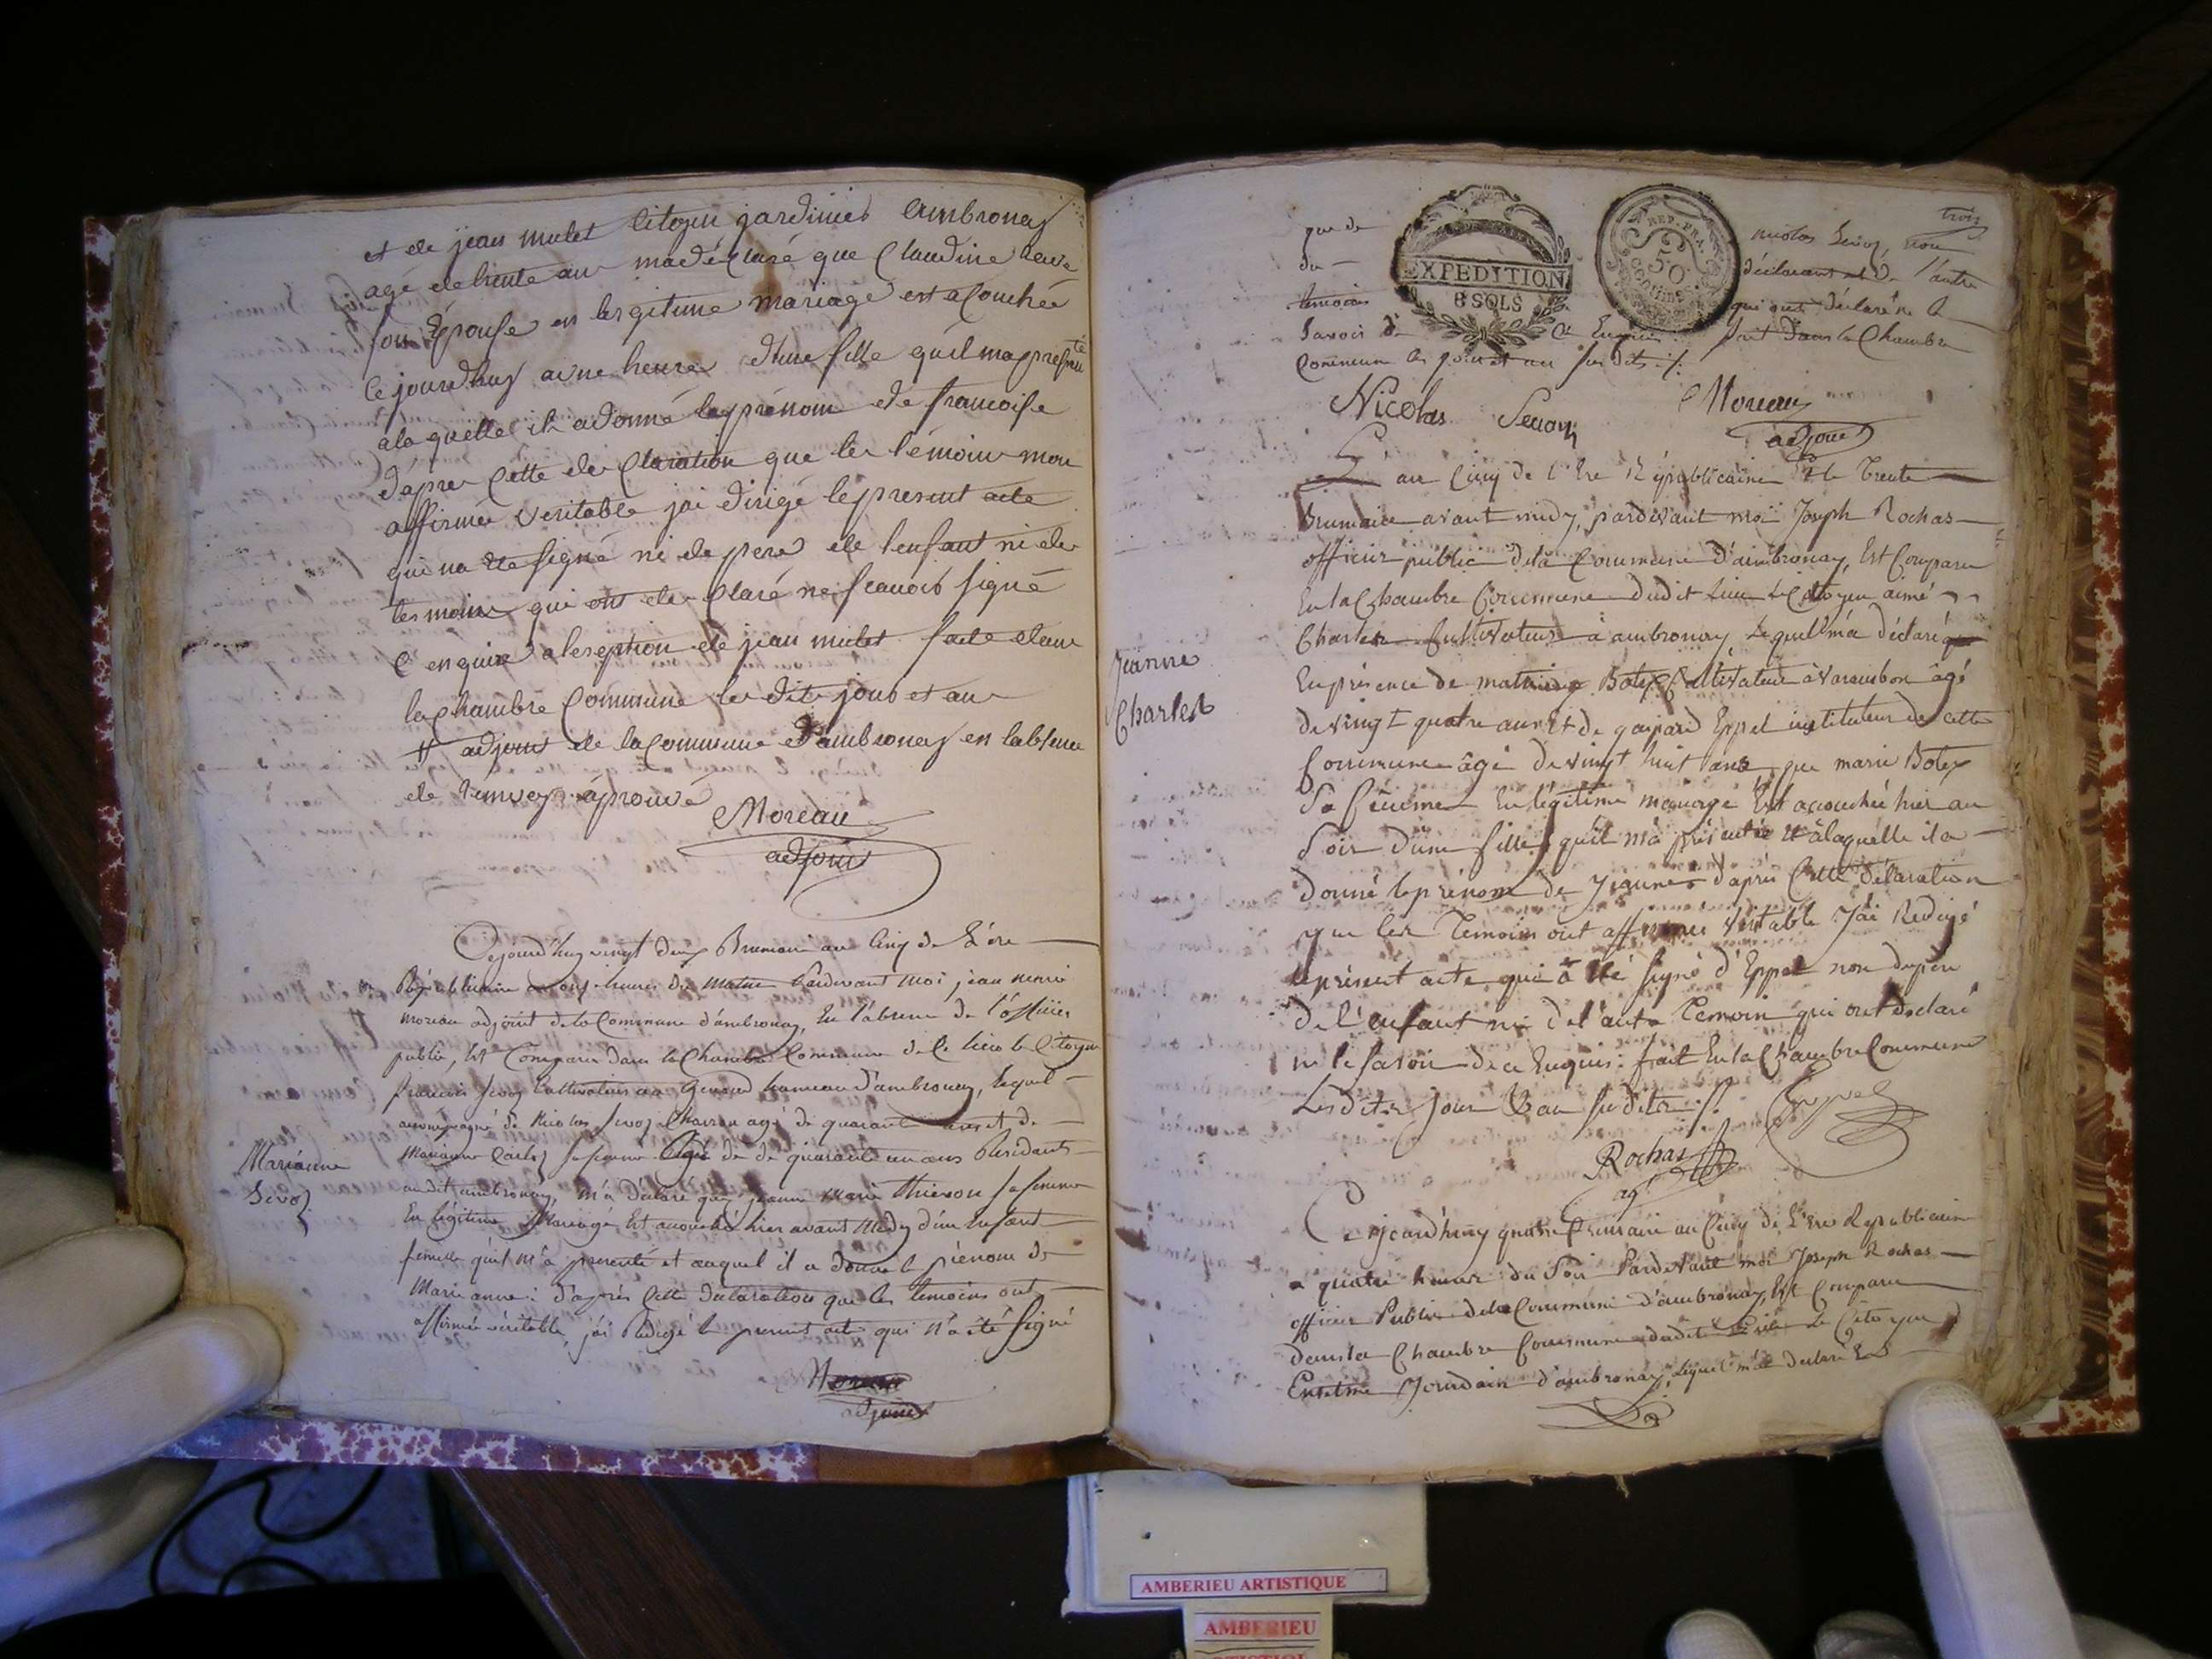 et de jean mulet Citoyen jardinier Ambronay
agé de trente ans madéclaré que Claudine
son Épouse en Legitime mariage est acouchée
Ce jourdhuy a une heure d'une fille quil ma presenté
a la quelle il a donné le prénom de francoise
d'apres Cette declaration que les témoins mon
affirmée veritable jai dirigé le present acte
qui na ete signé ni de pere de lenfant ni des
tesmoins qui ont declaré ne scavoir signé
enquire a leseption de jean mulet faite dans
la Chambre Commune les dits jour et an
adjoint de la Commune d'ambronay en labsence
de aprouvé
Moreau
adjoint
Cejourd'huy vingt deux Brumaire an Cinq de L'ère
Républicaine a onze heures du matin Pardevant moi jean
moreau adjoint de la Commune d'ambronay, En l'absence de l'officier
public, Est Comparu dans la Chambre Commune de Ce lieu le Citoyen
francois Sevoz Cultivateur au Genoud hameau d'ambronay, Lequel
accompagné de Nicolas Sevoz Charron agé de quarante ans et de
Marianne sa femme Agée de de quarante un ans Residants
audit ambronay, m'a déclaré que jeanne Marie Thievon sa femme
En légitime Mariage Est accouchée hier avant Midy d'un Enfant
femelle qu'il m'a presenté et auquel il a donné le prénom de
Marie anne: d'après Cette declaration que les temoins ont
affirmée véritable, j'ai Redigé le present acte qui N'a été signé
Marianne
Sevoz
Moreau
adjoint
trois
que de Nicolas Sevoz, non
du déclarant et de l'autre
temoin qui ont déclaré ne le
Savoir de Ce Enquis fait dans la Chambre
Commune les jour et an susdits ./.
EXPEDITION
8 SOLS
REP. FRA.
50
CENTIMES
Nicolas Sevoz Moreau
adjoint
L'an Cinq de l'Ere Républicaine & le Trente
Brumaire avant midy, pardevant moi Joseph Rochas
officier public de la Commune d'ambronay, Est Comparu
En la Chambre Commune dudit Lieu le Citoyen aimé
Charles Cultivateur à ambronay Lequel m'a déclaré
En présence de Botex Cultivateur à Varambon âgé
de vingt quatre ans Et de gaspard Eppel instituteur de cette
Commune âgé de vingt huit ans que marie Botex
Sa femme En légitime mariage Est accouchée hier au
Soir d'une fille qu'il m'a présentée et à laquelle il a
donné le prénom de Jeanne d'après Cette déclaration
que les Temoins ont affirmée Véritable J'ai Redigé
le présent acte qui à été signé d'Eppel non du pere
de l'enfant ni de l'autre Temoin qui ont declaré
ne le savoir de ce Enquis: fait En la Chambre Commune
Les dits Jour & an susdits ./.
Jeanne
Charles
Eppel
Rochas
ag.
Cejourd'huy quatre frimaire an Cinq de L'Ere Republicaine
a quatre heures du Soir Pardevant moi Joseph Rochas
officier Public de la Commune d'ambronay, Est Comparu
dans la Chambre Commune dudit Lieu le Citoyen
Jourdain d'ambronay, Lequel m'a declaré
AMBERIEU ARTISTIQUE
AMBERIEU
ARTISTIQUE